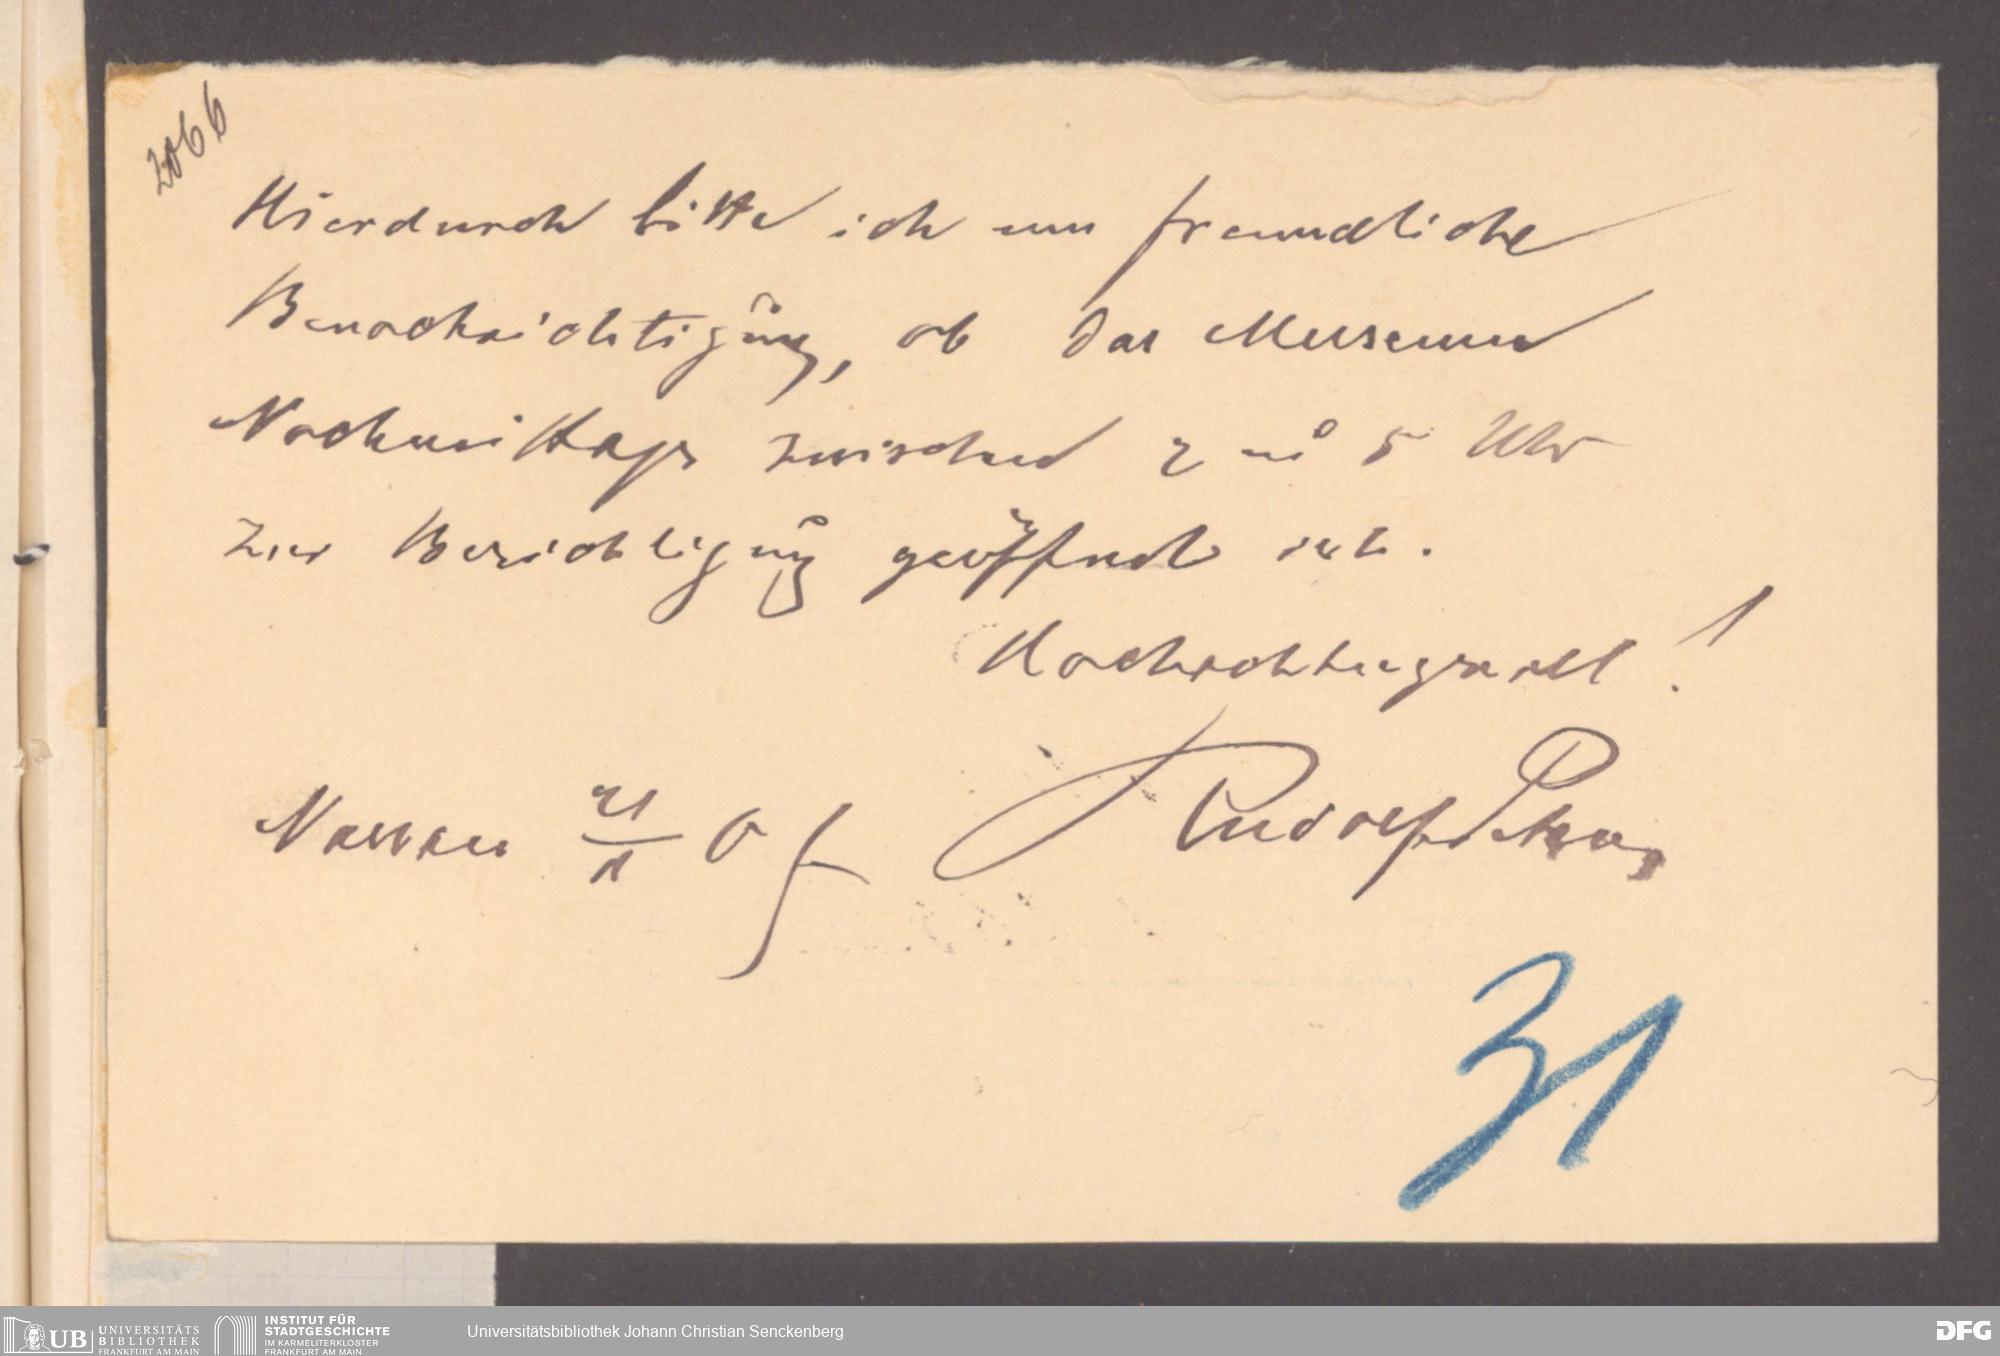 2066
Hierdurch bitte ich um freundliche
Benachrichtigung, ob das Museum
Nachmittags zwischen 2 u 5 Uhr
zur Besichtigung geöffnet ist.
Hochachtungsvoll!
Nassau 21/1 07 Rudolf
31
UB UNIVERSITÄTS
BIBLIOTHEK
FRANKFURT AM MAIN
INSTITUT FÜR
STADTGESCHICHTE
IM KARMELITERKLOSTER
FRANKFURT AM MAIN
Universitätsbibliothek Johann Christian Senckenberg
DFG